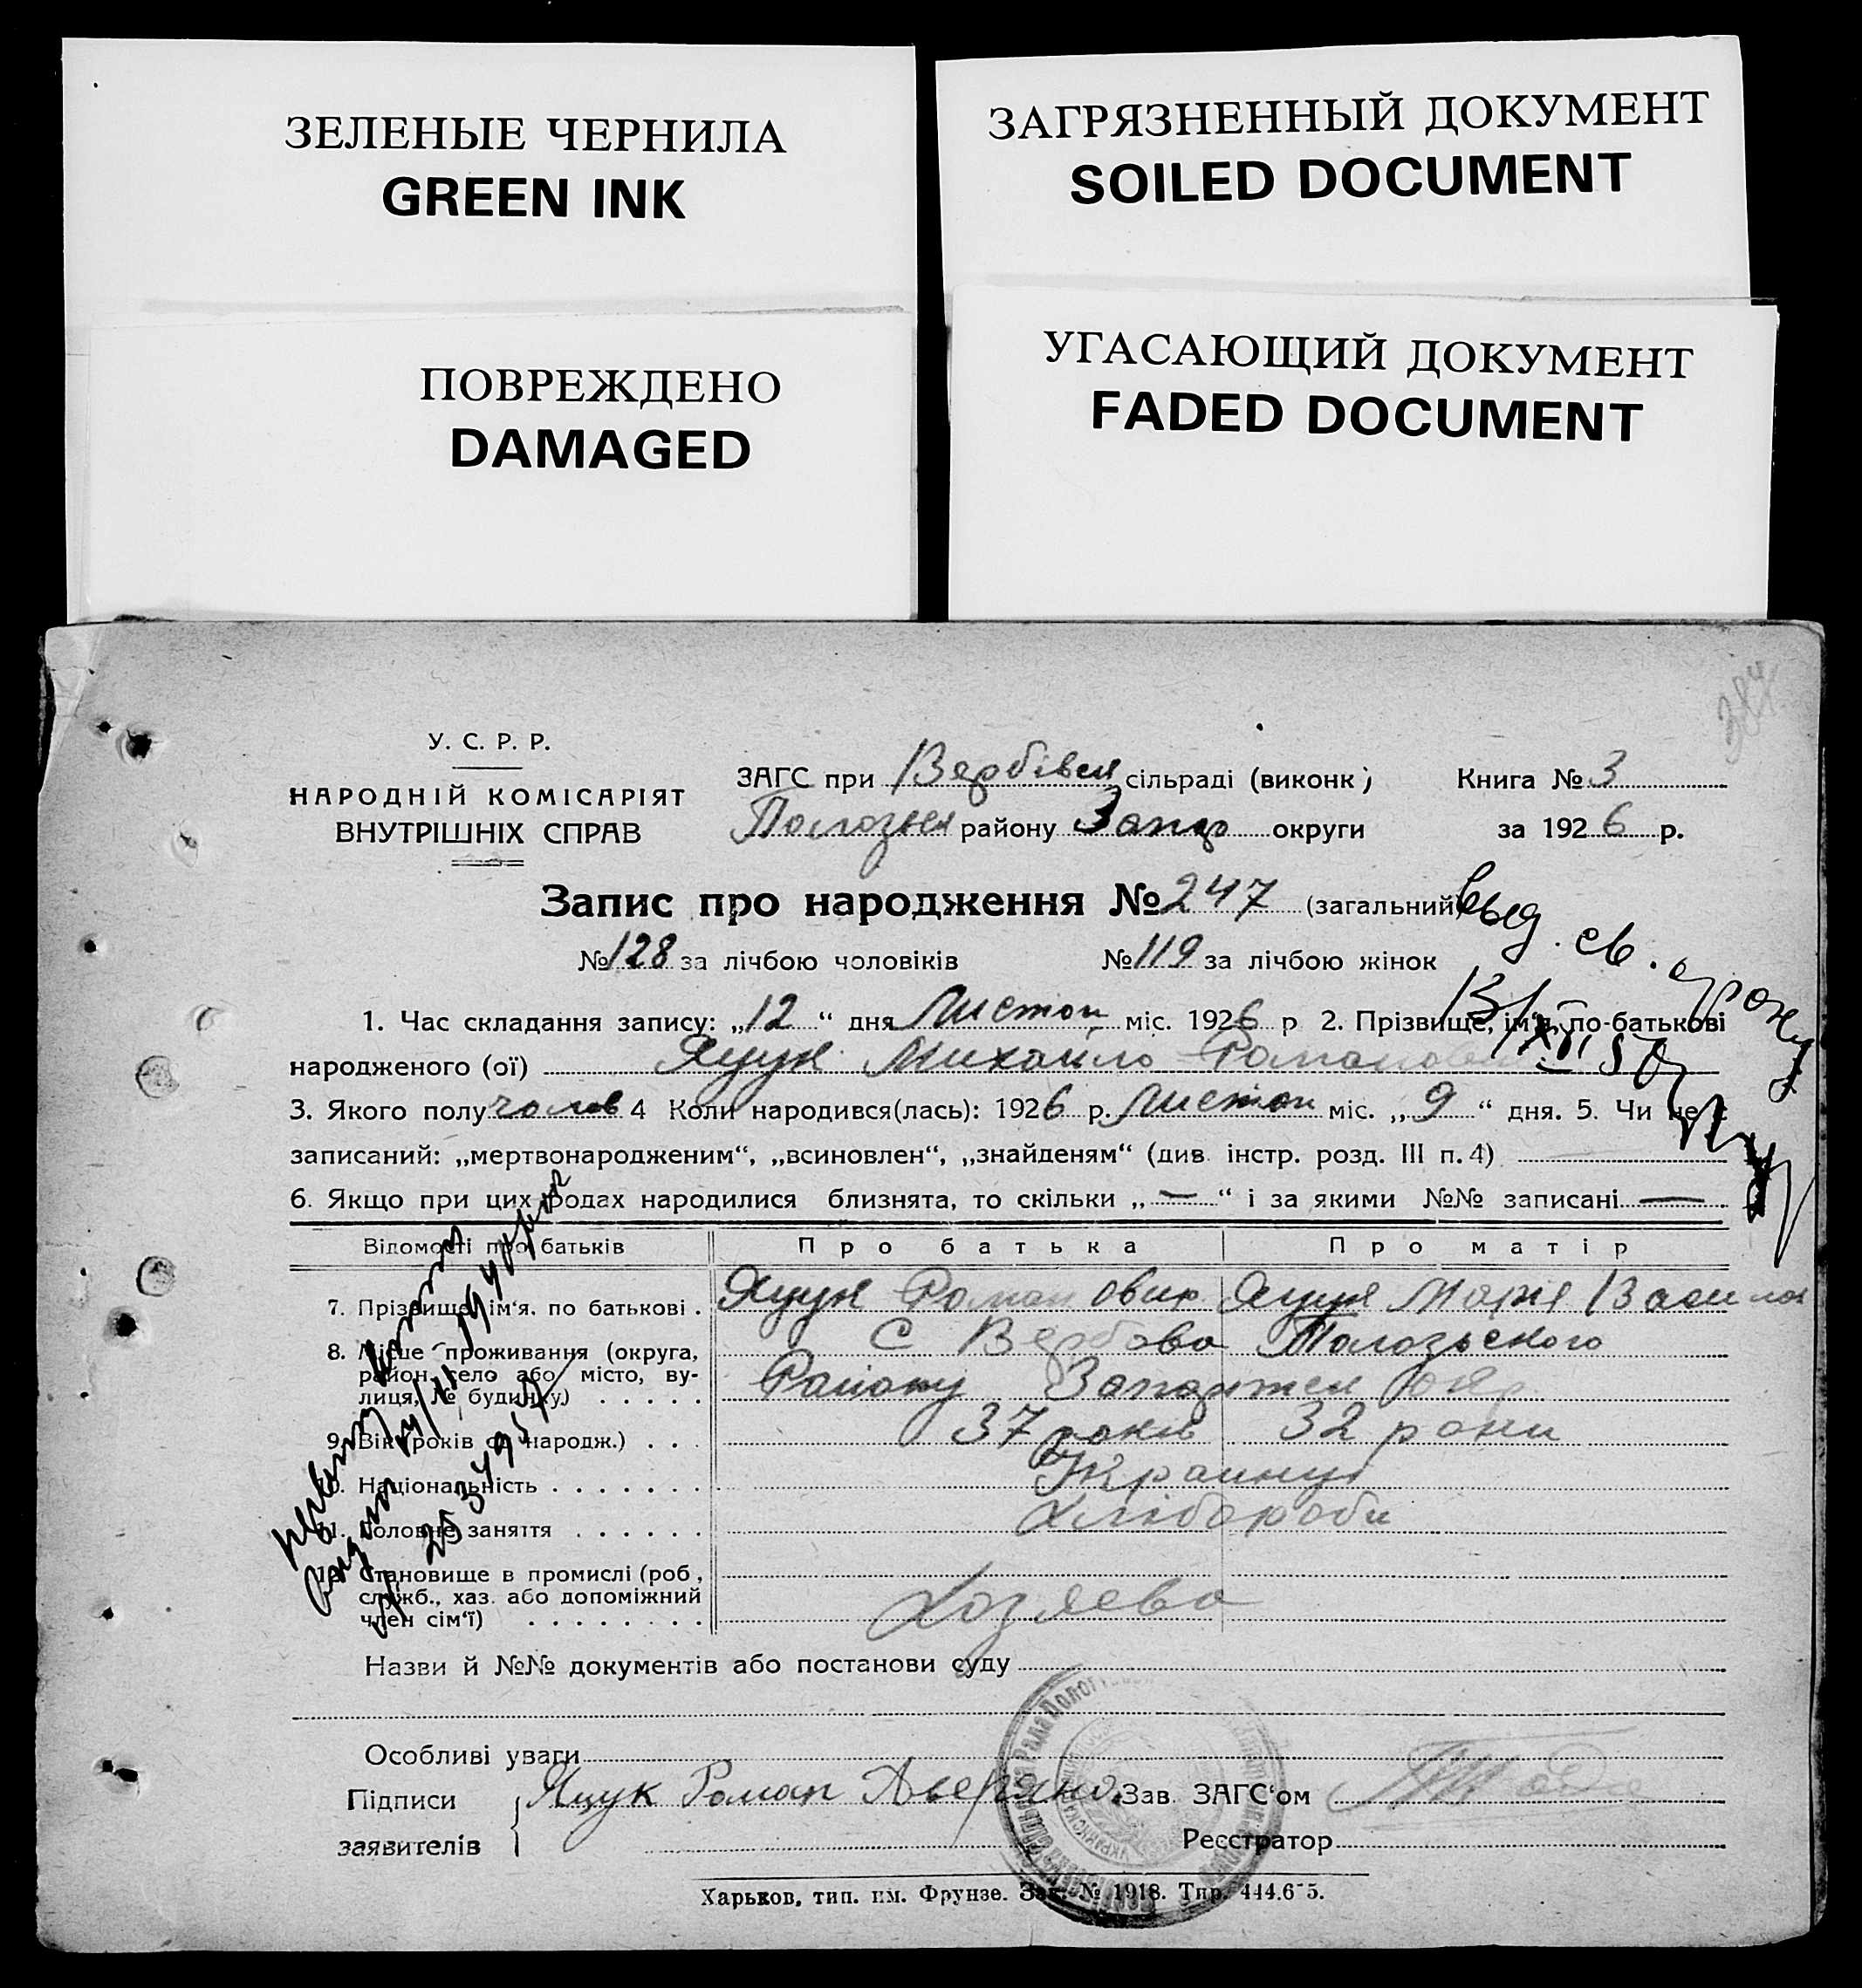 ЗЕЛЕНЫЕ ЧЕРНИЛА
GREEN INK
ЗАГРЯЗНЕННЫЙ ДОКУМЕНТ
SOILED DOCUMENT
ПОВРЕЖДЕНО
DAMAGED
УГАСАЮЩИЙ ДОКУМЕНТ
FADED DOCUMENT
384
У. С. Р. Р.
НАРОДНІЙ КОМІСАРІЯТ
ВНУТРІШНІХ СПРАВ
ЗАГС при Вербівск сільраді (виконк) Книга № 3
району Запор округи за 1926 р.
Запис про народження № 247 (загальний)
№ 128 за лічбою чоловіків № 119 за лічбою жінок
1. Час складання запису: „12“ дня Листоп міс. 1926 р 2. Прізвище, ім'я, по-батькові
народженого (ої) Яцук Михайло Романович
3. Якого полу чолов 4 Коли народився(лась): 1926 р. Листоп міс. „9“ дня. 5. Чи не є
записаний: „мертвонародженим“, „всиновлен“, „знайденям“ (див. інстр. розд. III п. 4)
6. Якщо при цих родах народилися близнята, то скільки „—“ і за якими №№ записані —
Відомості про батьків Про батька Про матір
7. Прізвище, ім'я, по батькові . Яцук Роман Яцук Марія
8. Місце проживання (округа, район, село або місто, вулиця, № будинку) . . . . . С Вербово Пологського
Району
9. Вік (років од народж.) . . . 37 років 32 роки
10. Національність . . . . . . . Украинці
11. Головне заняття . . . . . . Хлібороби
12. Становище в промислі (роб., служб., хаз. або допоміжний член сім'ї) . . . . . . . . Хозяева
Назви й №№ документів або постанови суду
Особливі уваги
Підписи Яцук Роман Зав. ЗАГС'ом
заявителів Реєстратор
Харьков, тип. им. Фрунзе. Зак. № 1918. Тир.